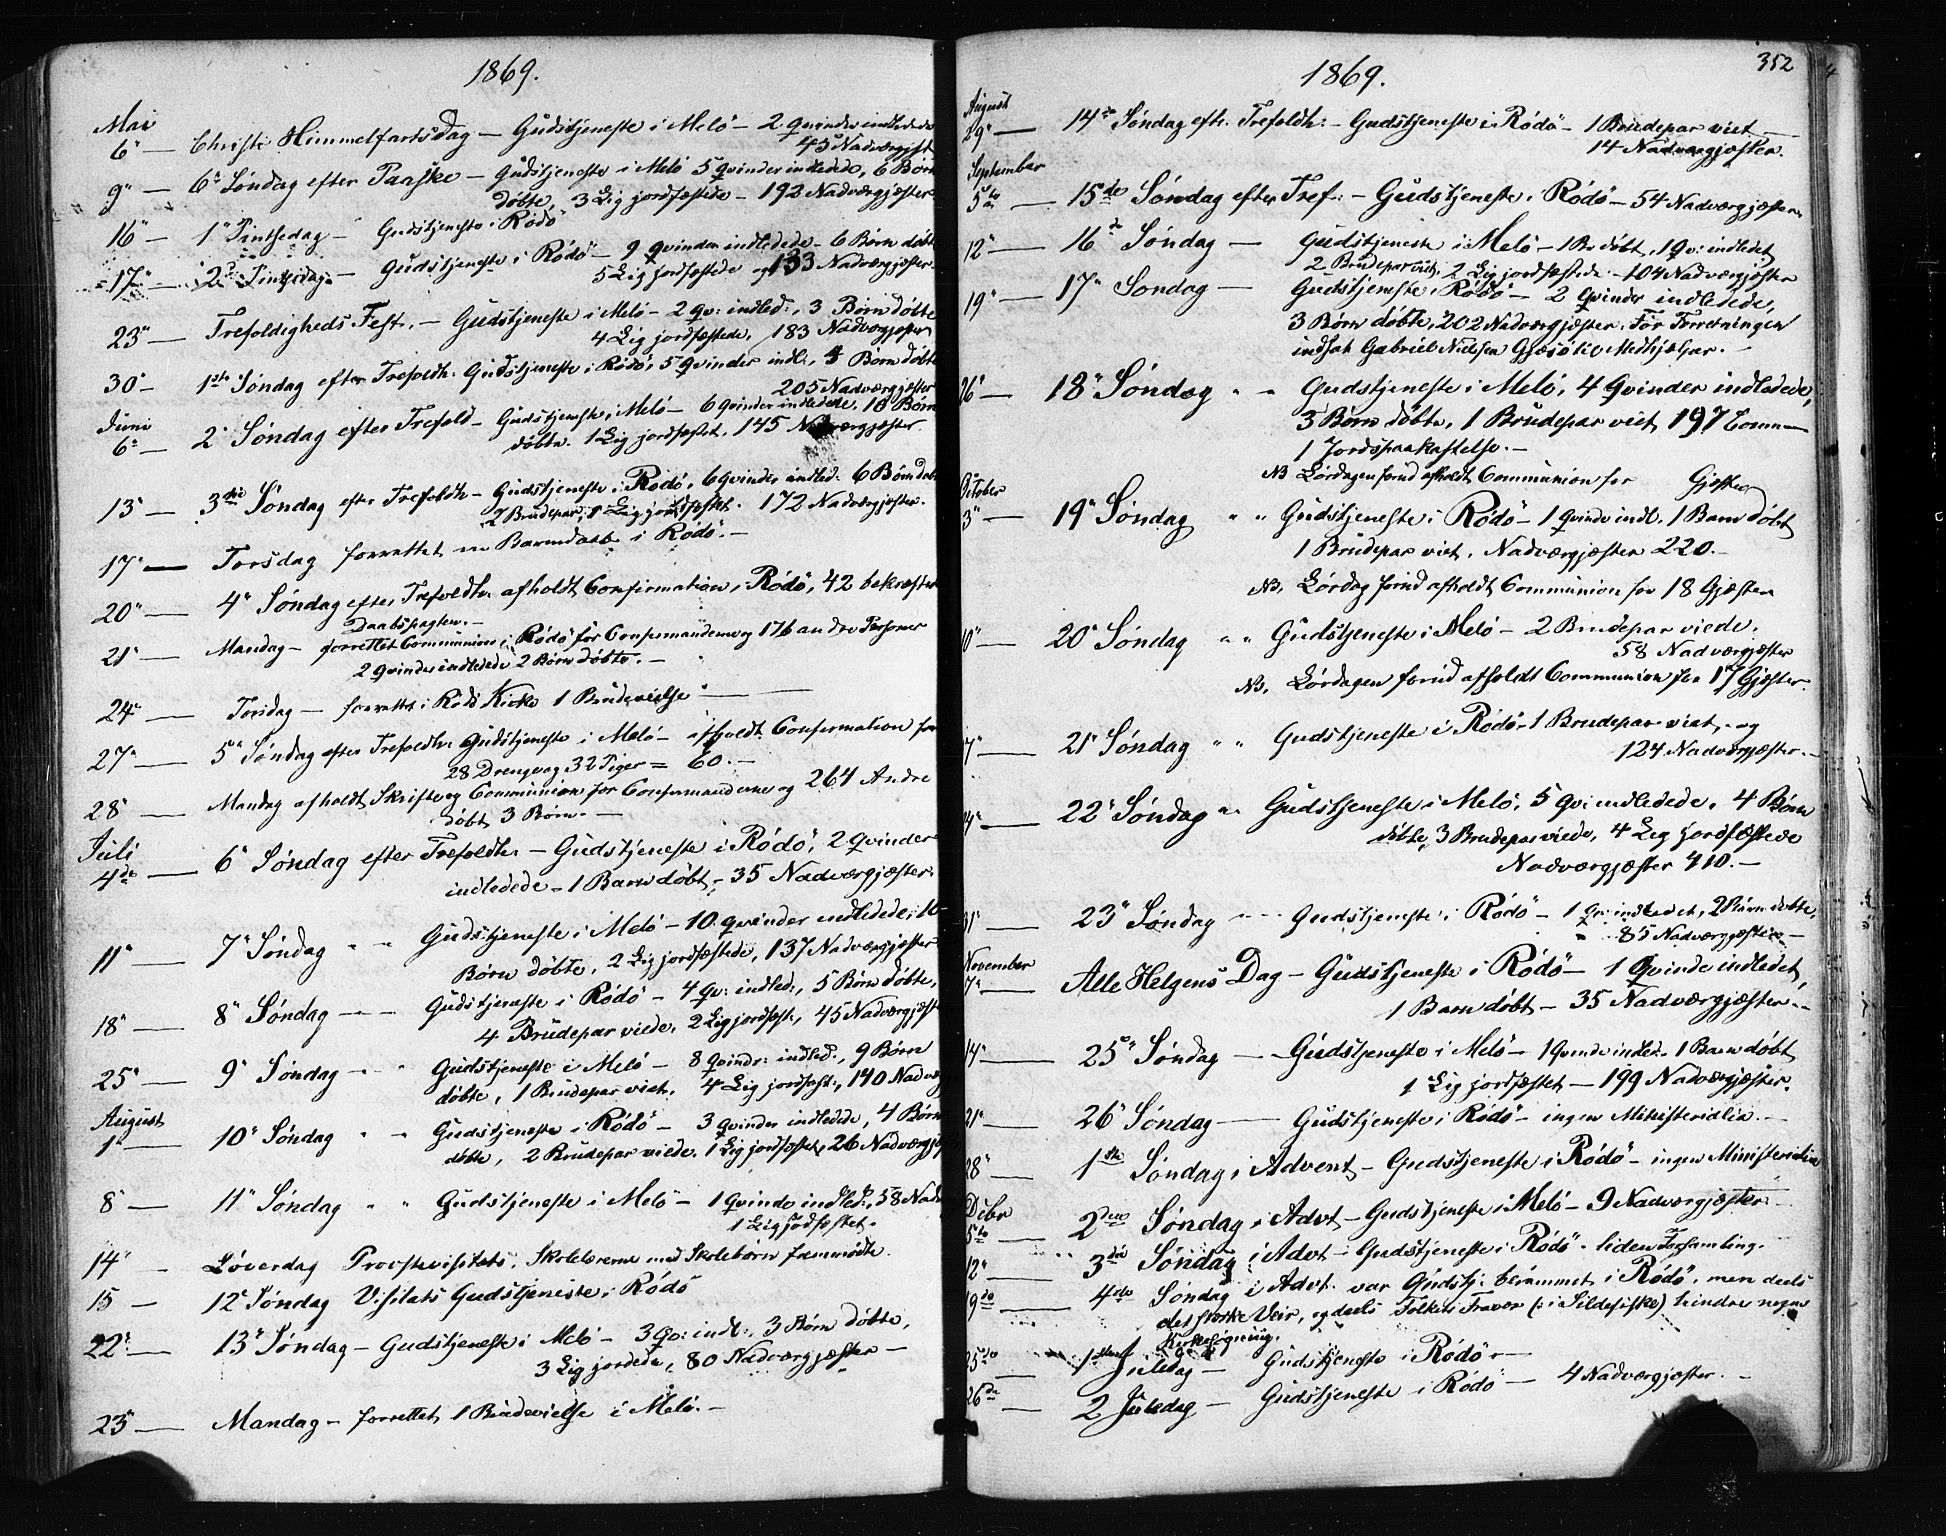 1869.
Mai
6" Christi Himmelfartsdag – Gudstjeneste i Melö – 2 Qvinder indledede
45 Nadvergjest
9" – 6" Söndag efter Paaske – Gudstjeneste i Melö 5 Qvinder indledede, 6 Börn
döbte, 3 Lig jordfæstede – 192 Nadværgjæster
16" – 1" Pintsedag – Gudstjeneste i Rödö
17" – 2" Pintsedag – Gudstjeneste i Rödö – 9 Qvinder indledede – 6 Börn döbt
5 Lig jordfæstede og 133 Nadværgjæster.
23" – Trefoldigheds Fest. – Gudstjeneste i Melö – 2 Qv: indled:, 3 Börn döbte
4 Lig jordfæstede, 183 Nadværgjæster
30" – 1ste Söndag efter Trefoldh. Gudstjeneste i Rödö, 5 Qvinder indl:, Börn döbte
205 Nadværgjæster
Juni
6" – 2" Söndag efter Trefold – Gudstjeneste i Melö – 6 Qvinder indledede, 10 Börn
döbte. 1 Lig jordfæstet, 145 Nadværgjæster
13" – 3die Söndag efter Trefoldh – Gudstjeneste i Rödö, 6 Qvinder indled: 6 Börn döbt
2 Brudepar, 1 Lig jordfæstet. 172 Nadværgjæster.
17" – Torsdag forrettet en Barnedaab i Rödö. –
20" – 4" Söndag efter Trefoldh. afholdt Confirmation i Rödö, 42 bekræfter
Daabspagten. –
21" – Mandag – forrettet Communion i Rödö for Confirmanderne og 176 andre Personer
2 Qvinder indledede 2 Börn döbte. –
24" – Torsdag – forrettet i Rödö Kirke 1 Brudevielse –
27" – 5" Söndag efter Trefoldh: Gudstjeneste i Melö – afholdt Confirmation for
28 Drenge og 32 Piger = 60. –
28" Mandag afholdt Skrifte og Communion for Confirmanderne og 264 Andre
döbt 3 Börn. –
Juli
4de – 6" Söndag efter Trefoldh. – Gudstjeneste i Rödö, 2 Qvinder
indledede – 1 Barn döbt – 35 Nadværgjæster.
11" – 7" Söndag " " Gudstjeneste i Melö – 10 Qvinder indledede, 10
Börn döbte, 2 Lig jordfæstede, 137 Nadværgjæster
18" – 8" Söndag – – Gudstjeneste i Rödö – 4 Qv: indled:, 5 Börn döbte,
4 Brudepar viede, 2 Lig jordfæst:, 45 Nadværgjæst
25" – 9" Söndag – " Gudstjeneste i Melö – 8 Qvindr: indled:, 9 Börn
döbte, 1 Brudepar viet, 4 Lig jordfæst:, 140 Nadværg
August
1" – 10" Söndag " " Gudstjeneste i Rödö – 3 Qvinder indledede, 4 Börn
döbte, 2 Brudepar viede, 1 Lig jordfæstet, 26 Nadværgjæ
8" – 11" Söndag " " Gudstjeneste i Melö – 1 Qvinde indled:, 58 Nadv
1 Lig jordfæstet.
14" Löverdag Provstevisitats, Skolelærerne med Skolebörn fremmödte.
15 – 12" Söndag Visitats Gudstjeneste i Rödö
22" – 13" Söndag – Gudstjeneste i Melö – 3 Qv: indl:, 3 Börn döbte,
3 Lig jordede, 80 Nadværgjæster –
23" – Mandag – forrettet 1 Brudevielse i Melö. –
352
1869.
August
29" – 14de Söndag eft. Trefoldh: – Gudstjeneste i Rödö – 1 Brudepar viet –
14 Nadværgjæster.
September
5te – 15de Söndag efter Tref: – Gudstjeneste i Rödö – 54 Nadværgjæster.
12" – 16de Söndag – Gudstjeneste i Melö – 1 B. döbt, 1 Qv: indledet
2 Brudepar viet, 2 Lig jordfæstede – 104 Nadværgjæster
19" – 17" Söndag – Gudstjeneste i Rödö – 2 Qvinder indledede,
3 Börn döbte, 202 Nadværgjæster. För Forretningen
indsat Gabriel Nielsen til Medhjælper. –
26" – 18" Söndag " " Gudstjeneste i Melö, 4 Qvinder indledede,
3 Börn döbte, 1 Brudepar viet 197 Comm –
1 Jordspaakastelse. –
NB Lördagen forud afholdt Communion for Gjæster
October
3" – 19" Söndag " " Gudstjeneste i Rödö – 1 Qvinde indl. 1 Barn döbt
1 Brudepar viet, Nadværgjæster 220. –
NB. Lördag forud afholdt Communion for 18 Gjæster
10" – 20" Söndag " " Gudstjeneste i Melö – 2 Brudepar viede.
58 Nadværgjæster
NB. Lördagen forud afholdt Communion for 17 Gjæster.
17" – 21" Söndag " " Gudstjeneste i Rödö – 1 Brudepar viet, og
124 Nadværgjæster. –
24" – 22" Söndag " " Gudstjeneste i Melö, 5 Qv: indledede, 4 Börn
döbte, 3 Brudepar viede, 4 Lig jordfæstede
Nadværgjæster 410. –
31" 23" Söndag – – Gudstjeneste i Rödö – 1 Qv: indledet, 2 Börn döbte,
85 Nadværgjæster –
November
7" – Alle Helgens Dag – Gudstjeneste i Rödö – 1 Qvinde indledet,
1 Barn döbt – 35 Nadværgjæster. –
14" – 25" Söndag – Gudstjeneste i Melö – 1 Qvinde indled. 1 Barn döbt
1 Lig jordfæstet – 199 Nadværgjæster.
21" – 26" Söndag – Gudstjeneste i Rödö – ingen Ministerialia. –
28" – 1ste Söndag i Advent – Gudstjeneste i Rödö – ingen Ministerialia
Decbr
5te – 2den Söndag i Advt – Gudstjeneste i Melö – 9 Nadværgjæster.
12" – 3die Söndag i Advt – Gudstjeneste i Rödö – liden Forsamling.
19de – 4de Söndag i Advt. var Gudstj: berammet i Rödö, men deels
det stærke Veir, og deels Folkets Fravær (: i Sildefiske) hindre nogen
Kirkesögning.
25de – 1ste Juledag – Gudstjeneste i Rödö –
26de – 2 Juledag – Gudstjeneste i Rödö – 4 Nadværgjæster. –